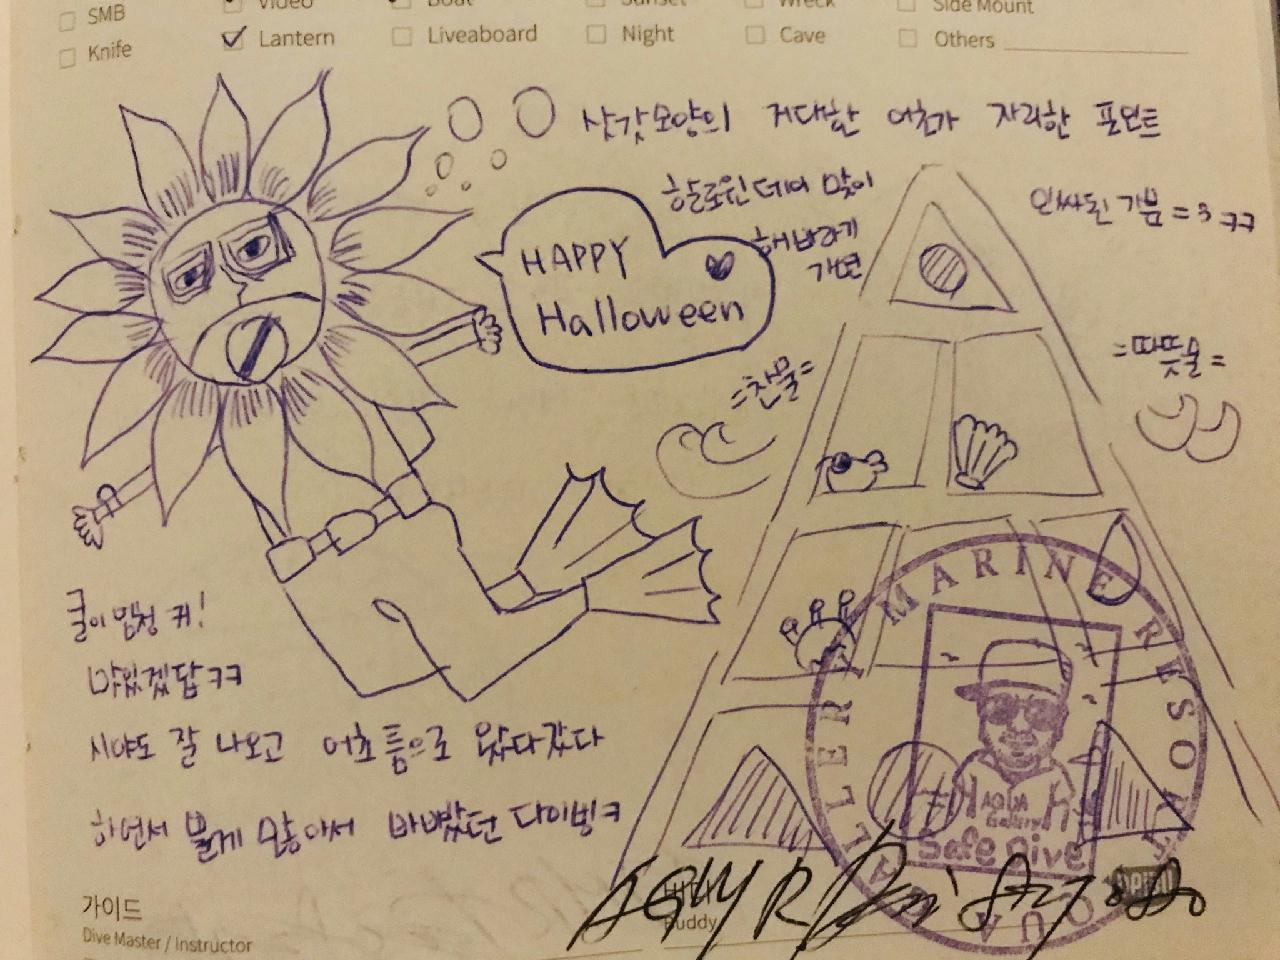 SMB
Video
Boat
Sunset
Wreck
Side Mount
Knife
Lantern
Liveaboard
Night
Cave
Others
삿갓모양의 거대한 어초가 자리한 포인트
할로윈데이 맞이
해바라기
가면
인싸된 기분 = 3 ㅋㅋ
HAPPY
Halloween
=찬물=
=따뜻물=
굴이 엄청 커!
맛있겠답 ㅋㅋ
시야도 잘 나오고 어초 틈으로 왔다갔다
하면서 볼게 많아서 바빴던 다이빙ㅋ
AQUA GALLERY MARINE RESORT
AQUA
Gallery
Safe Dive
가이드
Dive Master / Instructor
Buddy